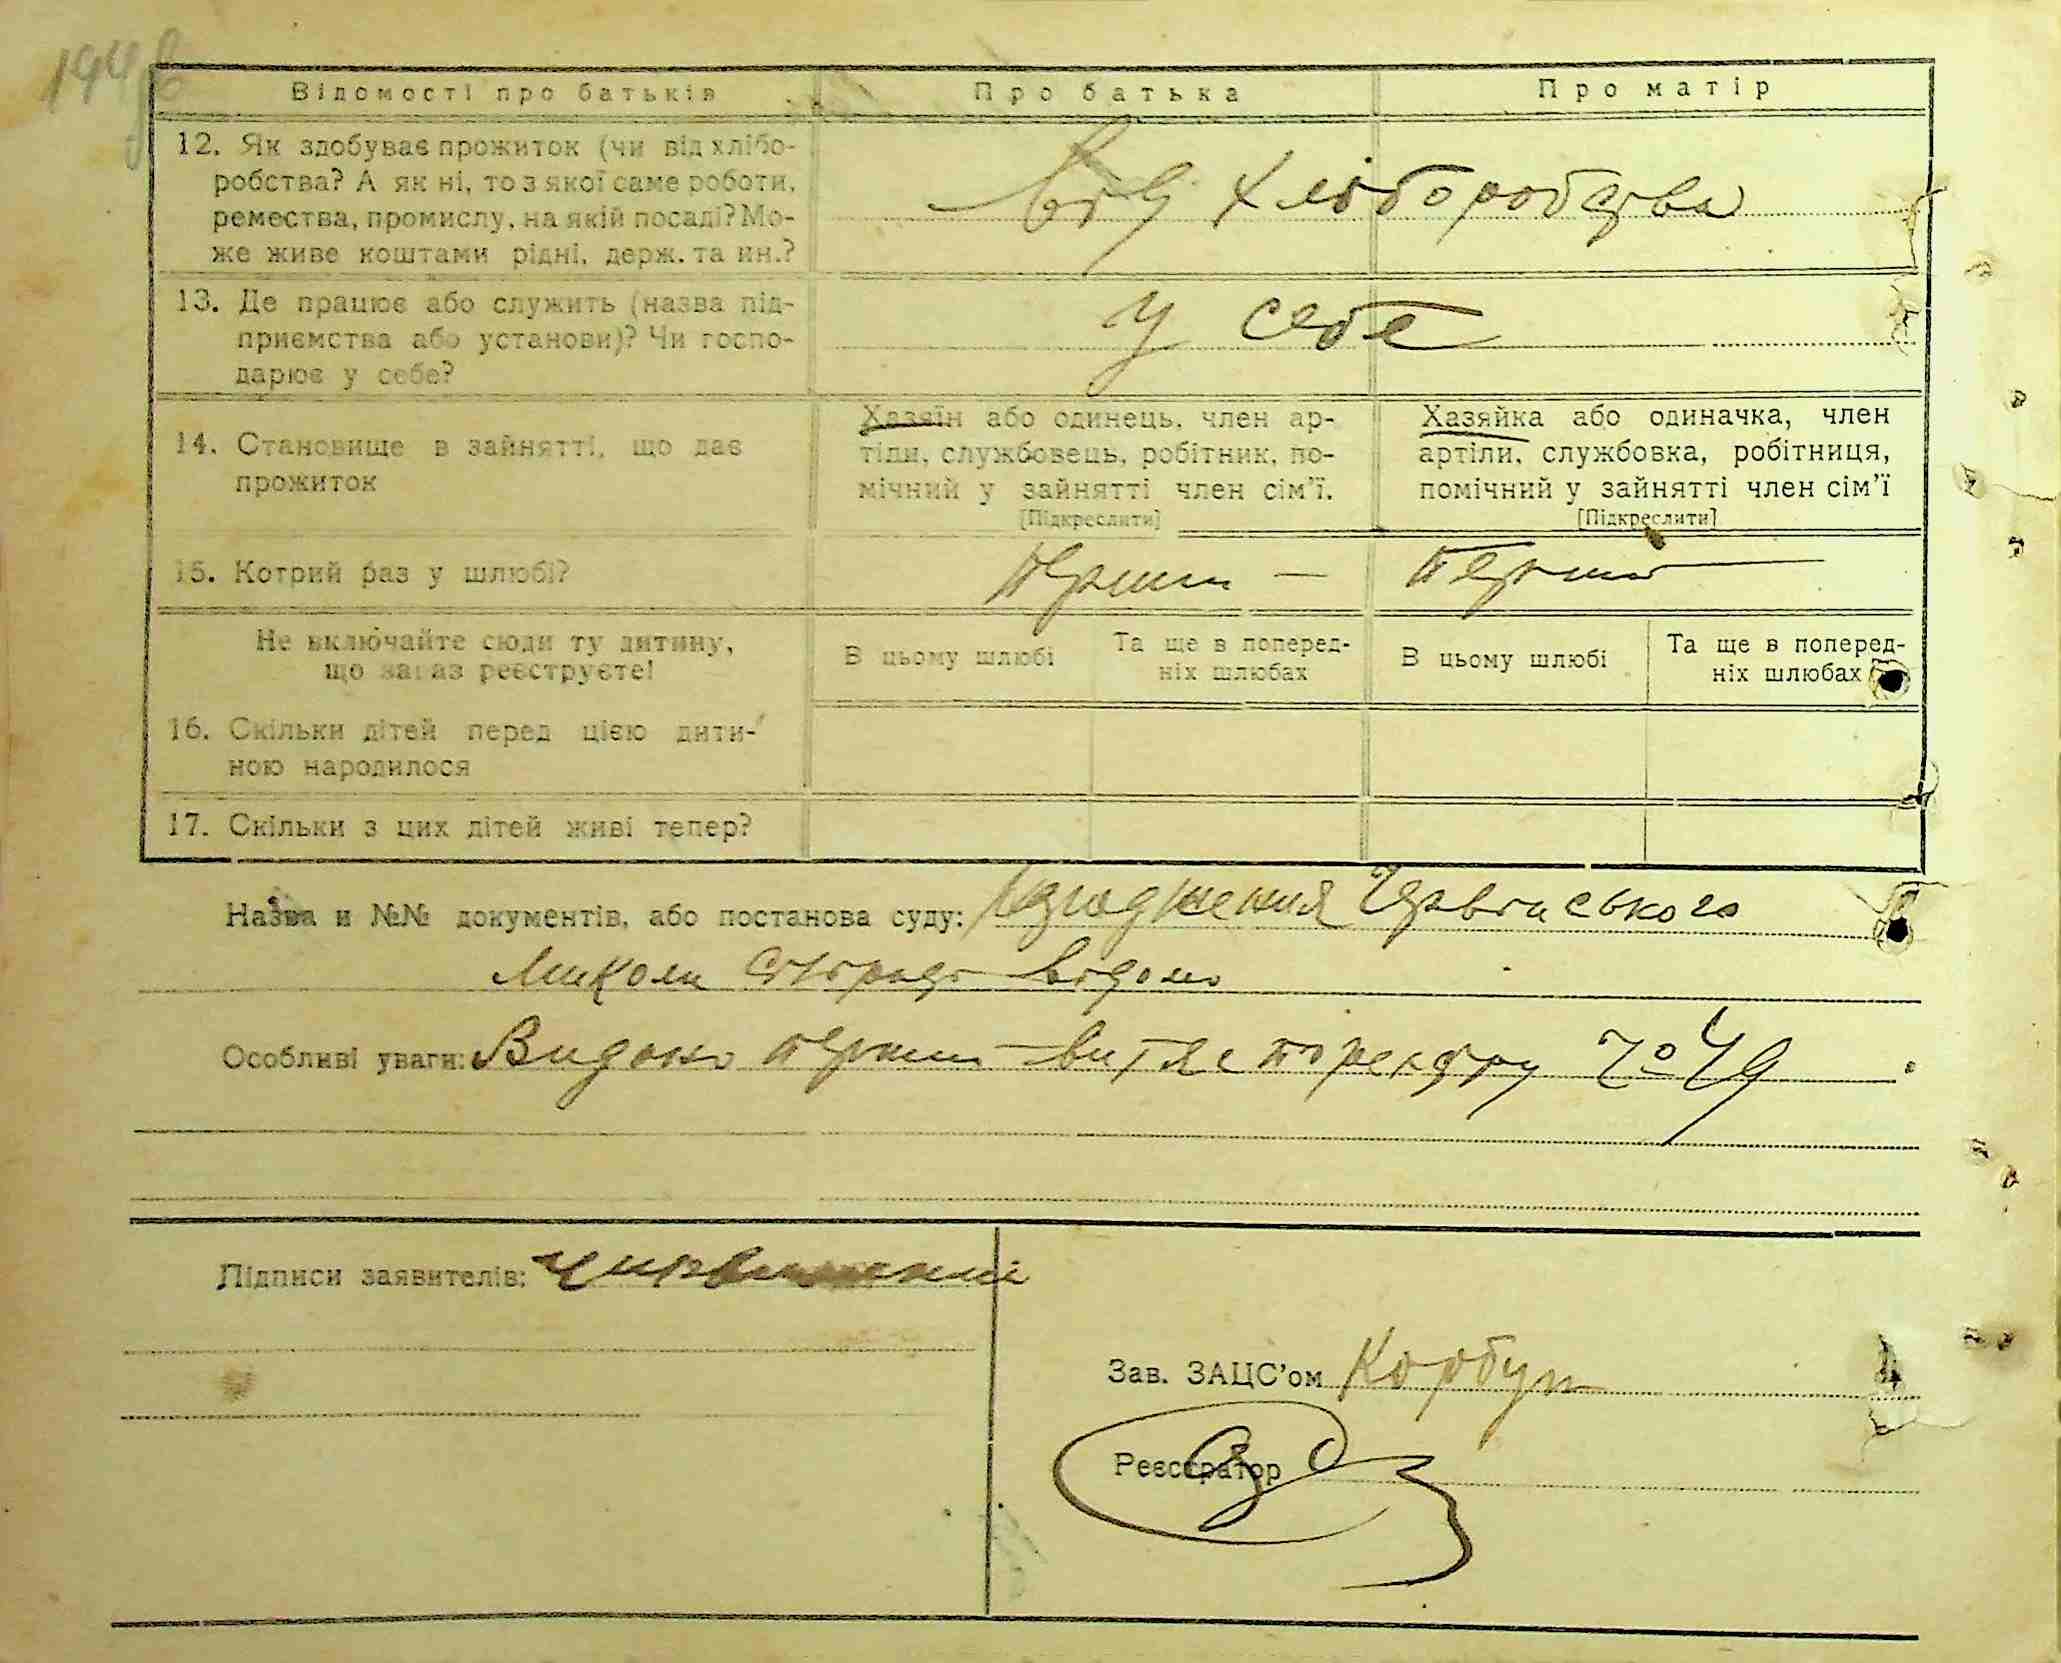 Відомості про батьків
Про батька
Про матір
12. Як здобуває прожиток (чи від хлібо-
робства? А як ні, то з якої саме роботи,
ремества, промислу, на якій посаді? Мо-
же живе коштами рідні, держ. та ин.?
від хліборобства
13. Де працює або служить (назва під-
приємства або установи)? Чи госпо-
дарює у себе?
у себе
14. Становище в зайнятті, що дає
прожиток
Хазяїн або одинець, член ар-
тіли, службовець, робітник, по-
мічний у зайнятті член сім’ї.
[Підкреслити]
Хазяйка або одиначка, член
артіли, службовка, робітниця,
помічний у зайнятті член сім’ї
[Підкреслити]
15. Котрий раз у шлюбі?
перший —
перший
Не включайте сюди ту дитину,
що зараз реєструєте!
В цьому шлюбі
Та ще в поперед-
ніх шлюбах
В цьому шлюбі
Та ще в поперед-
ніх шлюбах
16. Скільки дітей перед цією дити-
ною народилося
17. Скільки з цих дітей живі тепер?
Назва и №№ документів, або постанова суду:
Миколи відомо
Особливі уваги: Видано перший витяг по реєстру
Підписи заявителів:
Зав. ЗАЦС’ом Корбут
Реєстратор